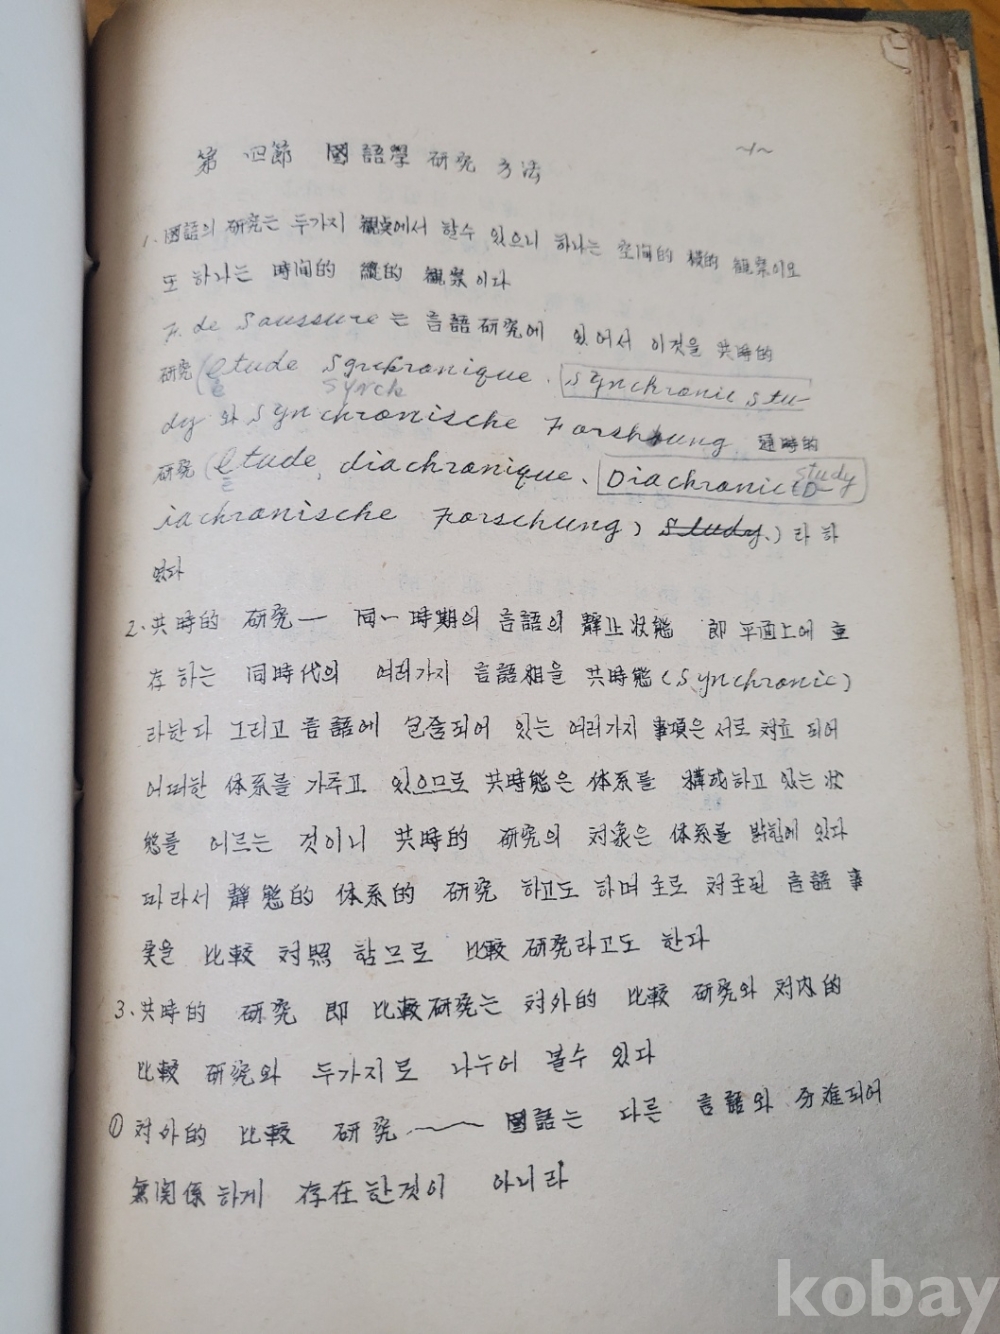 ~1~
第 四節 國語學 硏究 方法
1. 國語의 硏究는 두가지 觀点에서 할수 있으니 하나는 空间的 橫的 觀察이요
또 하나는 時间的 縱的 觀察이다
F. de Saussure는 言語硏究에 있어서 이것을 共時的
硏究(etude Sgnchronique. Synchronic stu-
e synck
dy 와 Synchronische Forshung 通時的
硏究(Etude, diachronique. Diachronic study (D-
e
iachronische Forschung) study.) 라 하
였다
2. 共時的 硏究— 同一時期의 言語의 靜止狀態 即 平面上에 並
存하는 同時代의 여러가지 言語相을 共時態(Synchronic)
라한다 그리고 言語에 包含되어 있는 여러가지 事項은 서로 対立되어
어떠한 体系를 가추고 있으므로 共時態은 体系를 構成하고 있는 狀
態를 이르는 것이니 共時的 硏究의 対象은 体系를 밝힘에 있다
따라서 靜態的 体系的 硏究 하고도 하며 로 対立된 言語 事
実을 比較 対照 함므로 比較 硏究라고도 한다
3. 共時的 硏究 即 比較硏究는 対外的 比較 硏究와 対內的
比較 硏究와 두가지로 나누어 볼수 있다
① 対外的 比較 硏究 —— 國語는 다른 言語와 되어
無関係하게 存在한것이 아니라
kobay